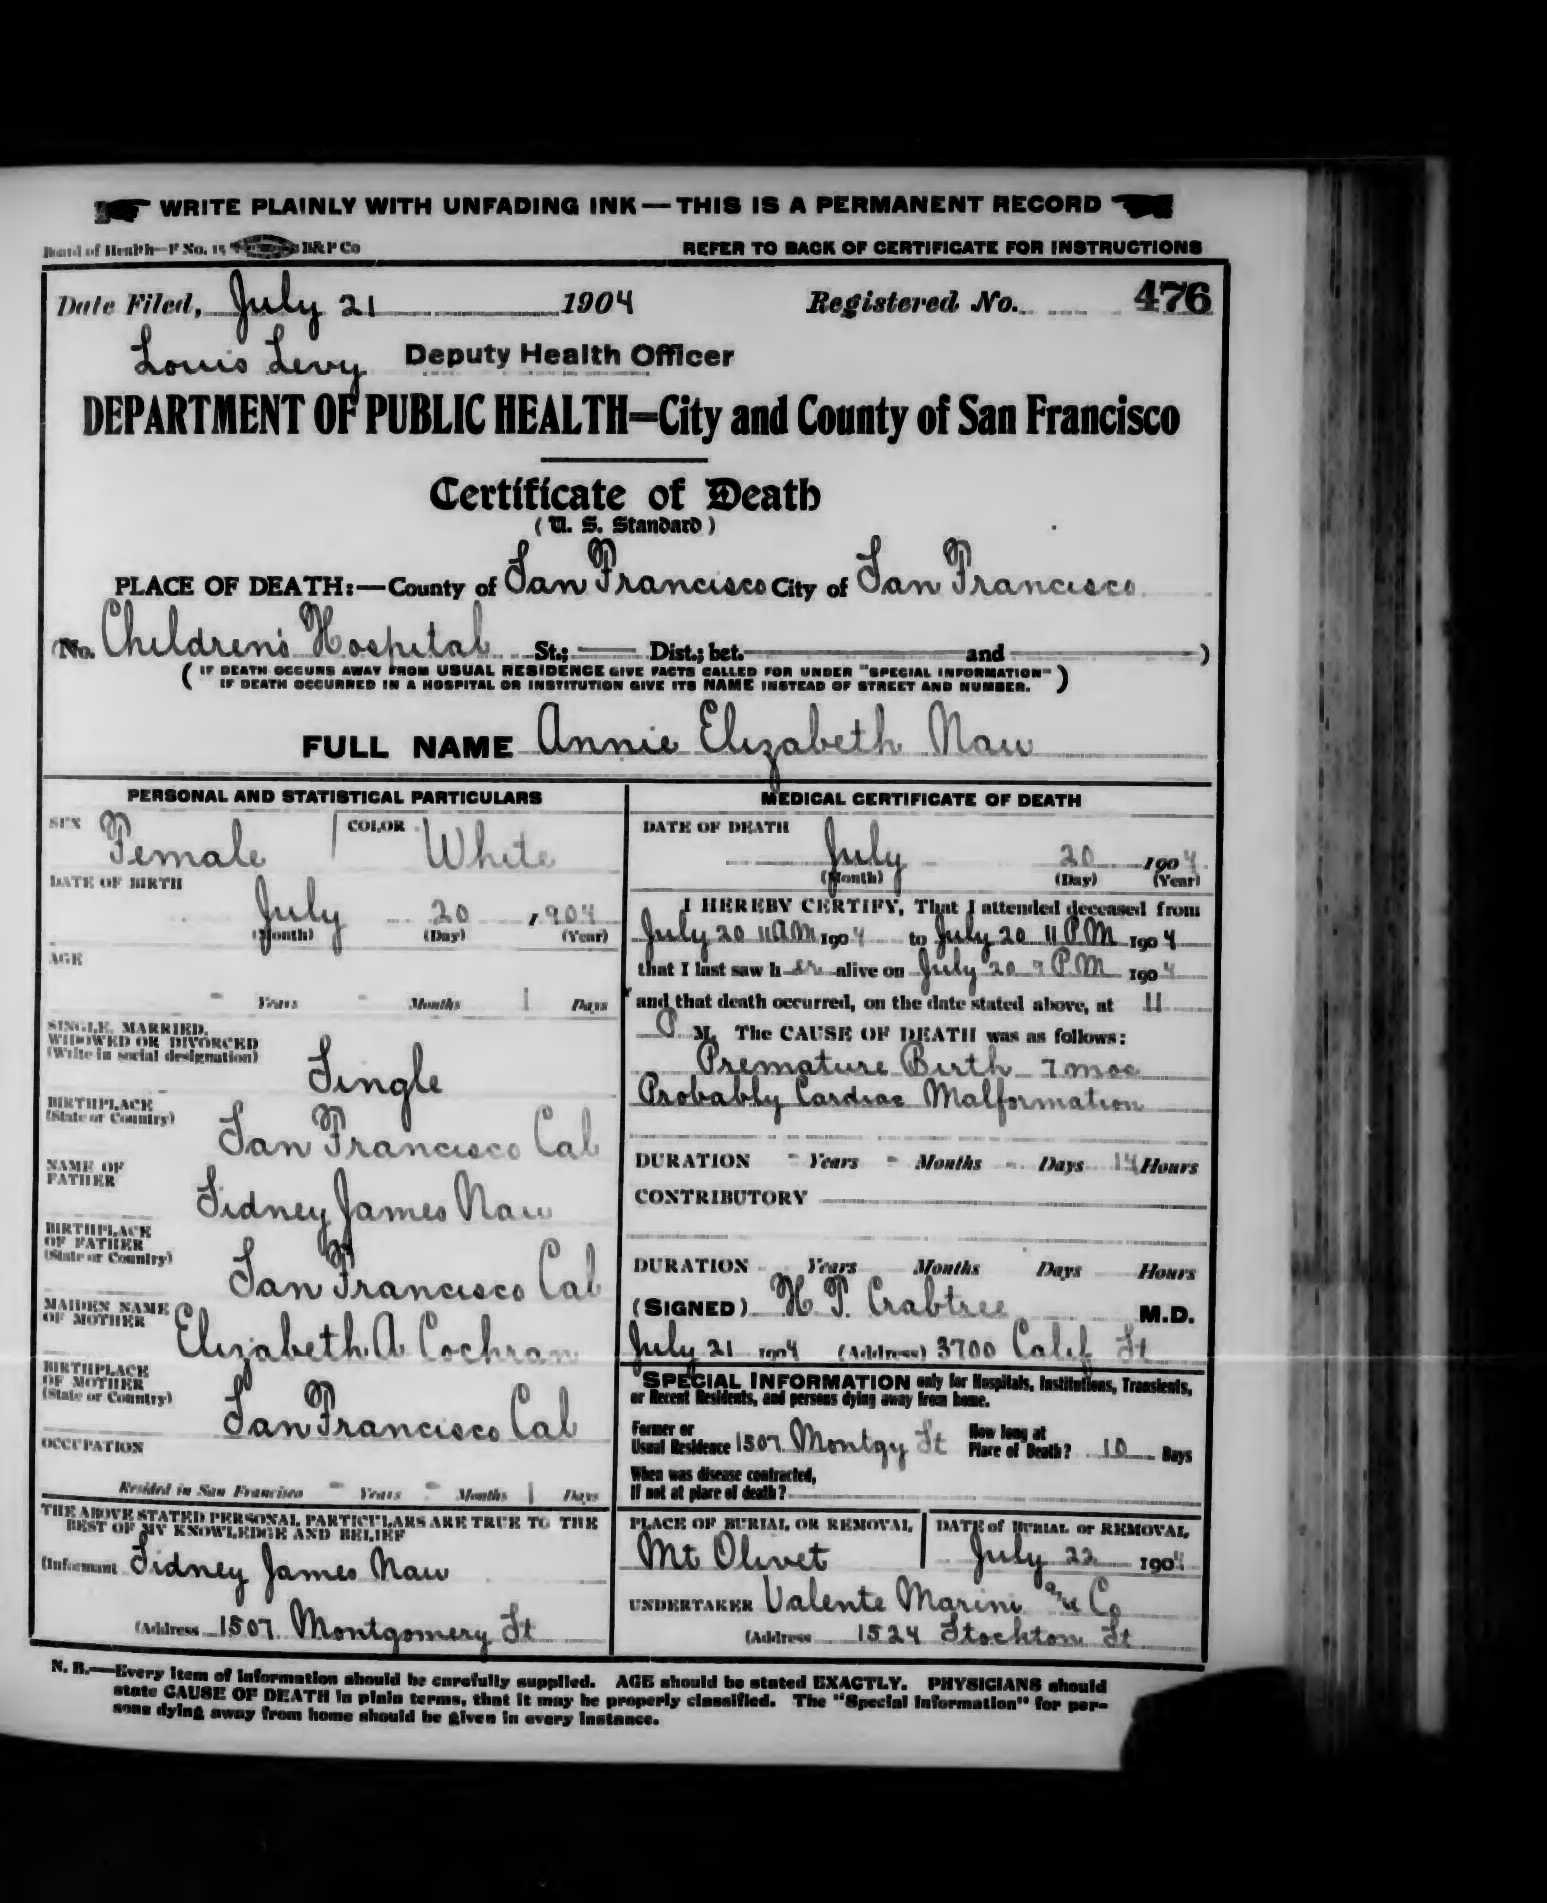 WRITE PLAINLY WITH UNFADING INK — THIS IS A PERMANENT RECORD
Board of Health—F No. 15 B&P Co REFER TO BACK OF CERTIFICATE FOR INSTRUCTIONS
Date Filed, July 21 1904 Registered No. 476
Louis Levy Deputy Health Officer
DEPARTMENT OF PUBLIC HEALTH=City and County of San Francisco
Certificate of Death
( U. S. Standard )
PLACE OF DEATH:—County of San Francisco City of San Francisco
(No. Children's Hospital St.; Dist.; bet. and )
( IF DEATH OCCURS AWAY FROM USUAL RESIDENCE GIVE FACTS CALLED FOR UNDER "SPECIAL INFORMATION"
IF DEATH OCCURRED IN A HOSPITAL OR INSTITUTION GIVE ITS NAME INSTEAD OF STREET AND NUMBER. )
FULL NAME Annie Elizabeth Naw
PERSONAL AND STATISTICAL PARTICULARS
SEX Female COLOR White
DATE OF BIRTH
July 20 , 904
(Month) (Day) (Year)
AGE
- Years - Months 1 Days
SINGLE, MARRIED,
WIDOWED OR DIVORCED
(Write in social designation)
Single
BIRTHPLACE
(State or Country)
San Francisco Cal
NAME OF
FATHER
Sidney James Naw
BIRTHPLACE
OF FATHER
(State or Country)
San Francisco Cal
MAIDEN NAME
OF MOTHER
Elizabeth A Cochran
BIRTHPLACE
OF MOTHER
(State or Country)
San Francisco Cal
OCCUPATION
Resided in San Francisco - Years - Months 1 Days
THE ABOVE STATED PERSONAL PARTICULARS ARE TRUE TO THE
BEST OF MY KNOWLEDGE AND BELIEF
(Informant Sidney James Naw
(Address 1507 Montgomery St
MEDICAL CERTIFICATE OF DEATH
DATE OF DEATH
July 20 1904
(Month) (Day) (Year)
I HEREBY CERTIFY, That I attended deceased from
July 20 11 AM 1904 to July 20 11 PM 1904
that I last saw h er alive on July 20 9 P.M 1904
and that death occurred, on the date stated above, at 11
P M. The CAUSE OF DEATH was as follows:
Premature Birth 7 mos
Probably Cardiac Malformation
DURATION - Years - Months - Days 14 Hours
CONTRIBUTORY
DURATION Years Months Days Hours
(SIGNED) H. P. Crabtree M.D.
July 21 1904 (Address) 3700 Calif St
SPECIAL INFORMATION only for Hospitals, Institutions, Transients,
or Recent Residents, and persons dying away from home.
Former or
Usual Residence 1507 Montgy St
How long at
Place of Death? 10 Days
When was disease contracted,
If not at place of death?
PLACE OF BURIAL OR REMOVAL
Mt Olivet
DATE of BURIAL or REMOVAL
July 22 1904
UNDERTAKER Valente Marini and Co
(Address 1524 Stockton St
N. B.—Every item of information should be carefully supplied. AGE should be stated EXACTLY. PHYSICIANS should
state CAUSE OF DEATH in plain terms, that it may be properly classified. The "Special Information" for per-
sons dying away from home should be given in every instance.